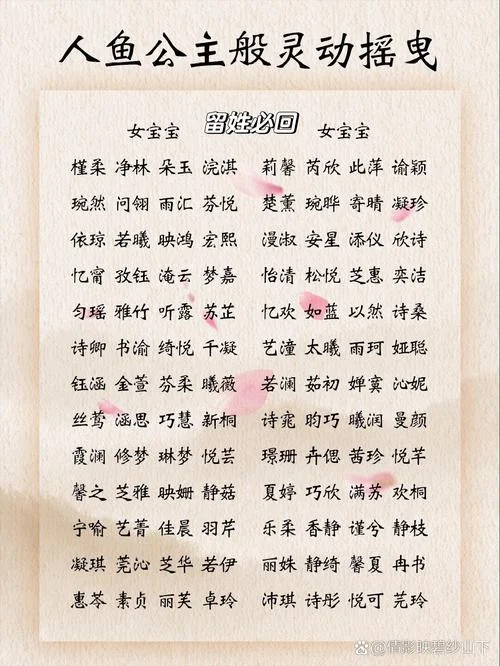 人鱼公主般灵动摇曳
留姓必回
女宝宝 女宝宝
槿柔 净林 朵玉 浣淇 莉馨 芮欣 此萍 谕颖
琬然 问翎 雨汇 芬悦 楚薰 琬晔 寄晴 凝珍
依琼 若曦 映鸿 宏熙 漫淑 安星 添仪 欣诗
忆甯 孜钰 淹云 梦嘉 怡清 松悦 芝惠 奕洁
匀瑶 雅竹 听露 苏芷 忆欢 如蓝 以然 诗桑
诗卿 书渝 绮悦 千凝 艺潼 太曦 雨珂 娅聪
钰涵 金萱 芬柔 曦薇 若澜 茹初 婵寞 沁妮
丝莺 涵思 巧慧 新桐 诗窕 昀巧 曦润 曼颜
霞澜 修梦 琳梦 悦芸 璟珊 卉偲 茜珍 悦芊
馨之 芝雅 映姗 静菇 夏婷 巧欣 满苏 欢桐
宁喻 艺菁 佳晨 羽芹 乐柔 香静 谨兮 静枝
凝琪 莞沁 芝华 若伊 丽姝 静绮 馨夏 冉书
惠苓 素贞 丽芙 卓玲 沛琪 诗彤 悦可 芫玲
@倩影映碧纱山下